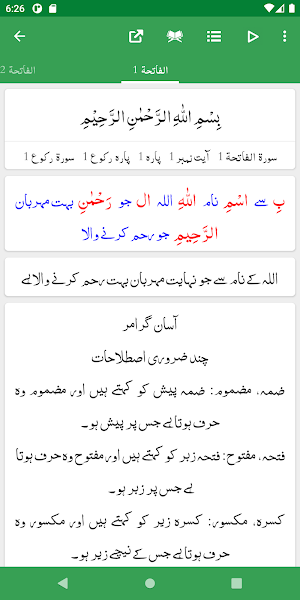 6:26
الفاتحة 1
الفاتحة 2
بِسْمِ اللّٰهِ الرَّحْمٰنِ الرَّحِيْمِ
سورۃ الفاتحة 1 آیت نہبر 1 پارہ 1 پارہ رکوع 1 سورۃ رکوع 1
بِ سے اسْمِ نام اللّٰهِ اللہ ال جو رَحْمٰنِ بہت مہربان
الرَّحِيمِ جو رحم کرنے والا
اللہ کے نام سے جو نہایت مہربان بہت رحم کرنے والا ہے
آسان گرامر
چند ضروری اصطلاحات
ضمہ، مضموم: ضمہ پیش کو کہتے ہیں اور مضموم وہ
حرف ہوتا ہے جس پر پیش ہو۔
فتحہ، مفتوح: فتحہ زبر کو کہتے ہیں اور مفتوح وہ حرف ہوتا
ہے جس پر زبر ہو۔
کسرہ، مکسور: کسرہ زیر کو کہتے ہیں اور مکسور وہ
حرف ہوتا ہے جس کے نیچے زیر ہو۔